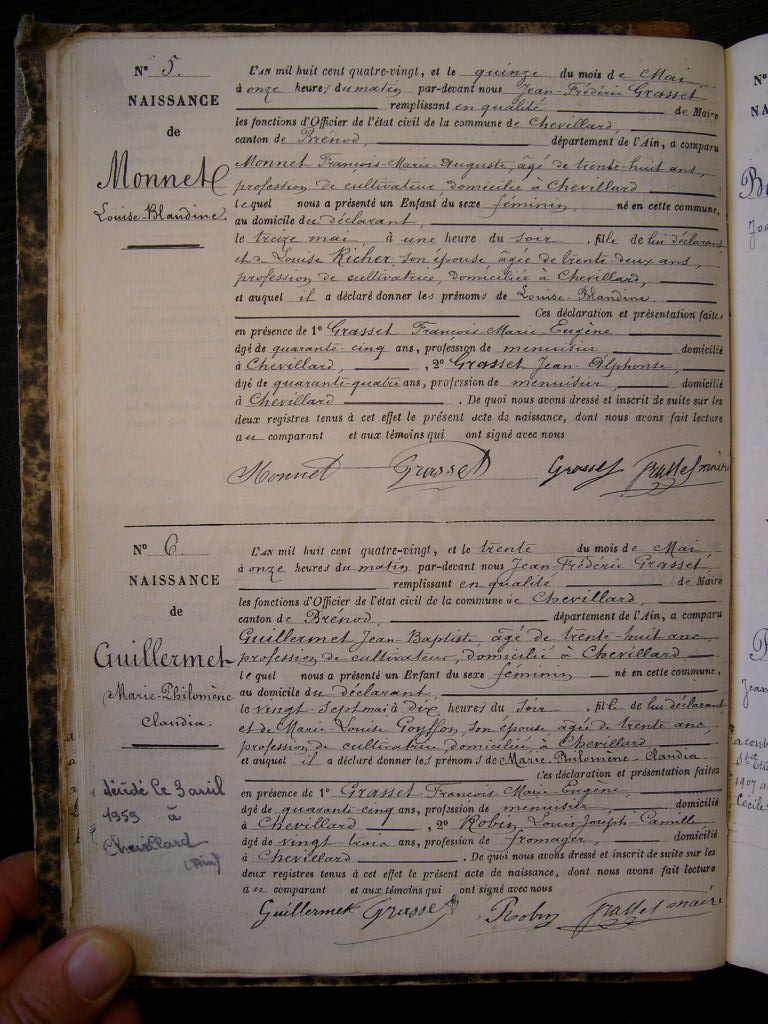 N° 5.
NAISSANCE
de
Monnet
Louise-Blandine.
L'AN mil huit cent quatre-vingt, et le quinze du mois de Mai
à onze heures du matin par-devant nous Jean-Frédéric Grasset
remplissant en qualité de Maire
les fonctions d'Officier de l'état civil de la commune de Chevillard,
canton de Brénod, département de l'Ain, a comparu
Monnet François-Marie-Auguste, âgé de trente-huit ans,
profession de cultivateur, domicilié à Chevillard
lequel nous a présenté un Enfant du sexe féminin, né en cette commune,
au domicile du déclarant,
le treize mai, à une heure du soir, fille de lui déclarant
et de Louise Richer, son épouse âgée de trente-deux ans,
profession de cultivatrice, domiciliée à Chevillard,
et auquel il a déclaré donner les prénoms de Louise-Blandine.
Ces déclaration et présentation faites
en présence de 1° Grasset François-Marie-Eugène
âgé de quarante-cinq ans, profession de menuisier domicilié
à Chevillard, , 2° Grasset Jean-Alphonse,
âgé de quarante-quatre ans, profession de menuisier, domicilié
à Chevillard . De quoi nous avons dressé et inscrit de suite sur les
deux registres tenus à cet effet le présent acte de naissance, dont nous avons fait lecture
au comparant et aux témoins qui ont signé avec nous
Monnet Grasset Grasset Grasset maire
N° 6.
NAISSANCE
de
Guillermet
Marie-Philomène
Claudia.
L'AN mil huit cent quatre-vingt, et le trente du mois de Mai,
à onze heures du matin par-devant nous Jean-Frédéric Grasset,
remplissant en qualité de Maire
les fonctions d'Officier de l'état civil de la commune de Chevillard,
canton de Brénod, département de l'Ain, a comparu
Guillermet Jean-Baptiste âgé de trente-huit ans,
profession de cultivateur, domicilié à Chevillard
lequel nous a présenté un Enfant du sexe féminin né en cette commune,
au domicile du déclarant,
le vingt-sept mai à dix heures du soir, fille de lui déclarant
et de Marie-Louise Goyffon, son épouse âgée de trente ans,
profession de cultivateur domiciliée, à Chevillard
et auquel il a déclaré donner les prénoms de Marie-Philomène-Claudia.
Ces déclaration et présentation faites
en présence de 1° Grasset François Marie Eugène,
âgé de quarante cinq ans, profession de menuisier, domicilié
à Chevillard , 2° Robin Louis-Joseph-Camille
âgé de vingt-trois ans, profession de fromager, domicilié
à Chevillard . De quoi nous avons dressé et inscrit de suite sur les
deux registres tenus à cet effet le présent acte de naissance, dont nous avons fait lecture
au comparant et aux témoins qui ont signé avec nous
Guillermet Grasset Robin Grasset maire
décédé le 3 avril
1959 à
Chevillard
(Ain)